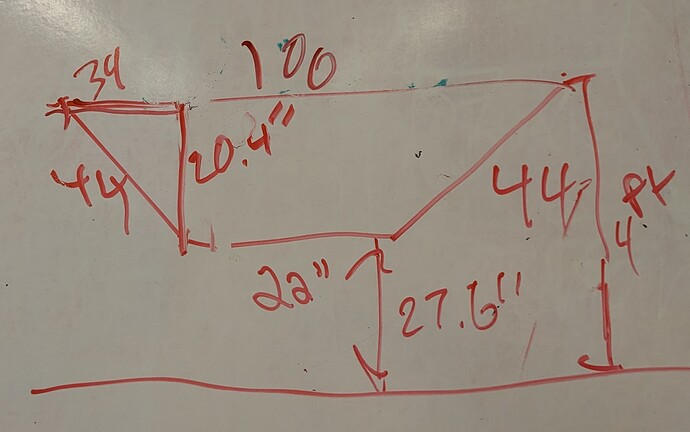 34
100
20.4"
44
44
4
22"
27.6"